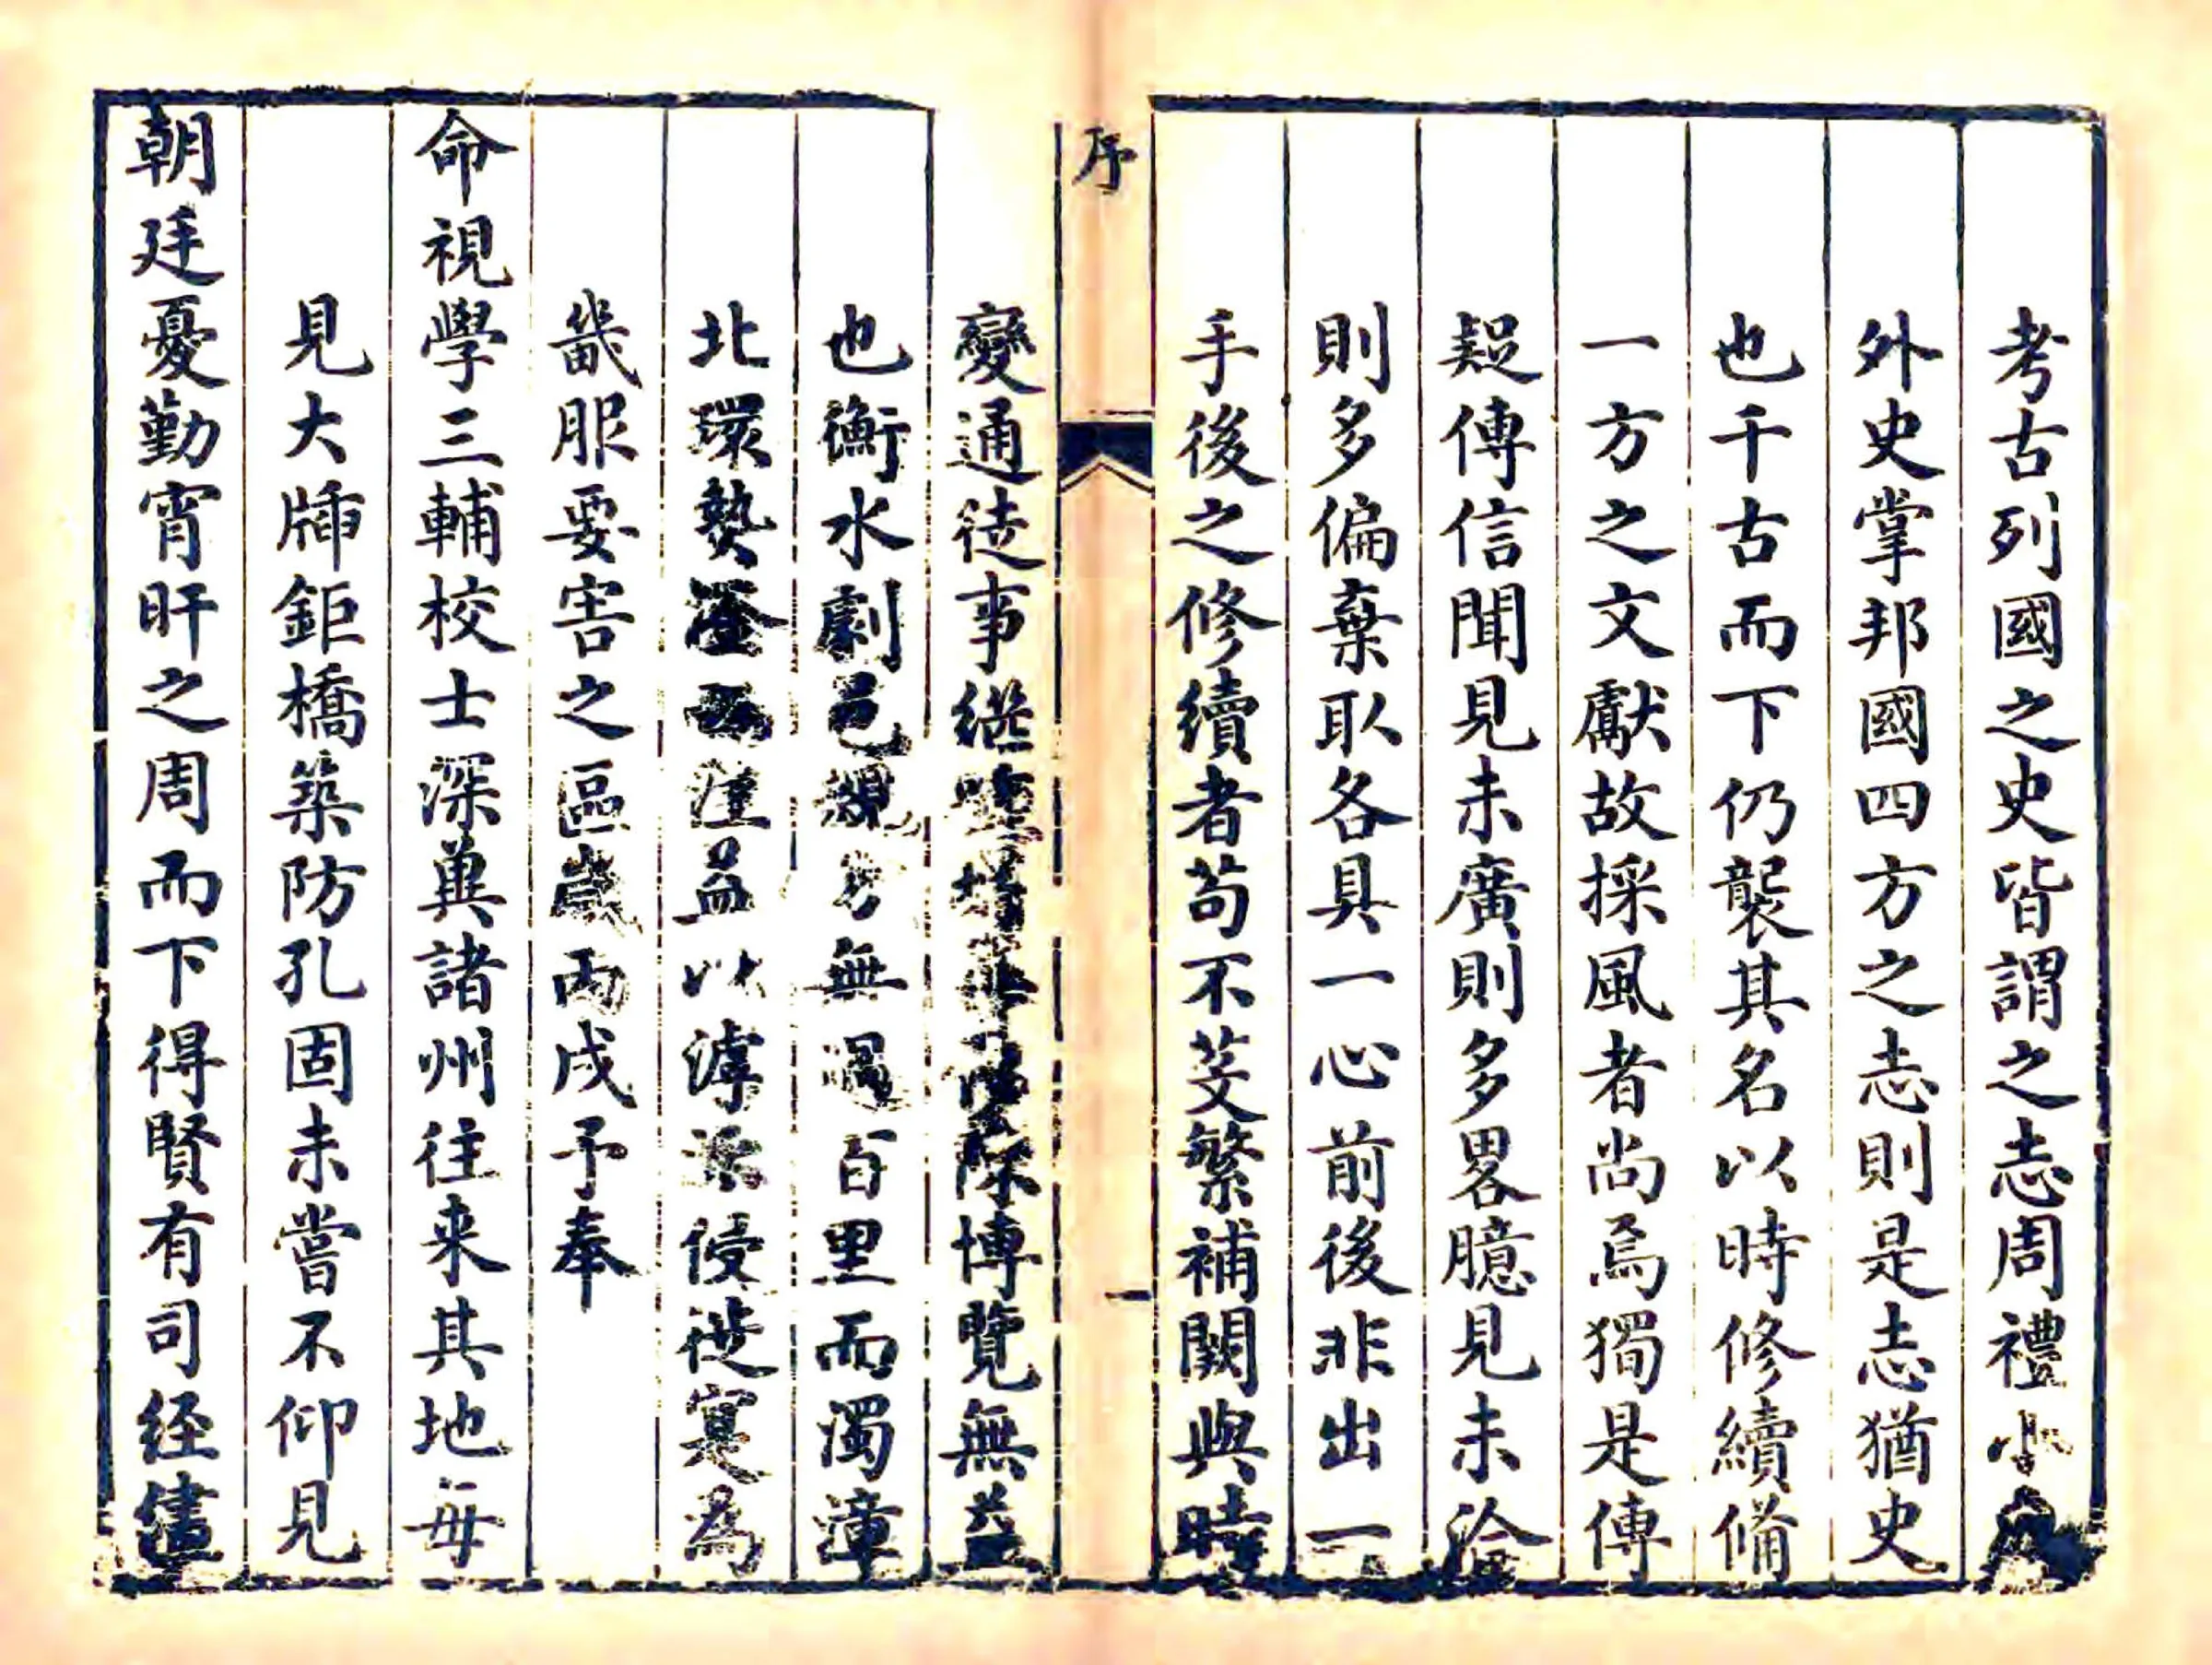 考古列國之史皆謂之志周禮小
外史掌邦國四方之志則是志猶史
也千古而下仍襲其名以時修續俻
一方之文獻故採風者尚焉獨是傳
疑傳信聞見未廣則多畧臆見未論
則多偏棄取各具一心前後非出一
手後之修續者苟不芟繁補闕與時
序
一
變通徒事継博覽無益
也衡水劇邑無百里而濁漳
北環注益以滹侵徙寔為
畿服要害之區歲丙戌予奉
命視學三輔校士深冀諸州往来其地每
見大㛼鉅橋築防孔固未嘗不仰見
朝廷憂勤宵旰之周而下得賢有司経